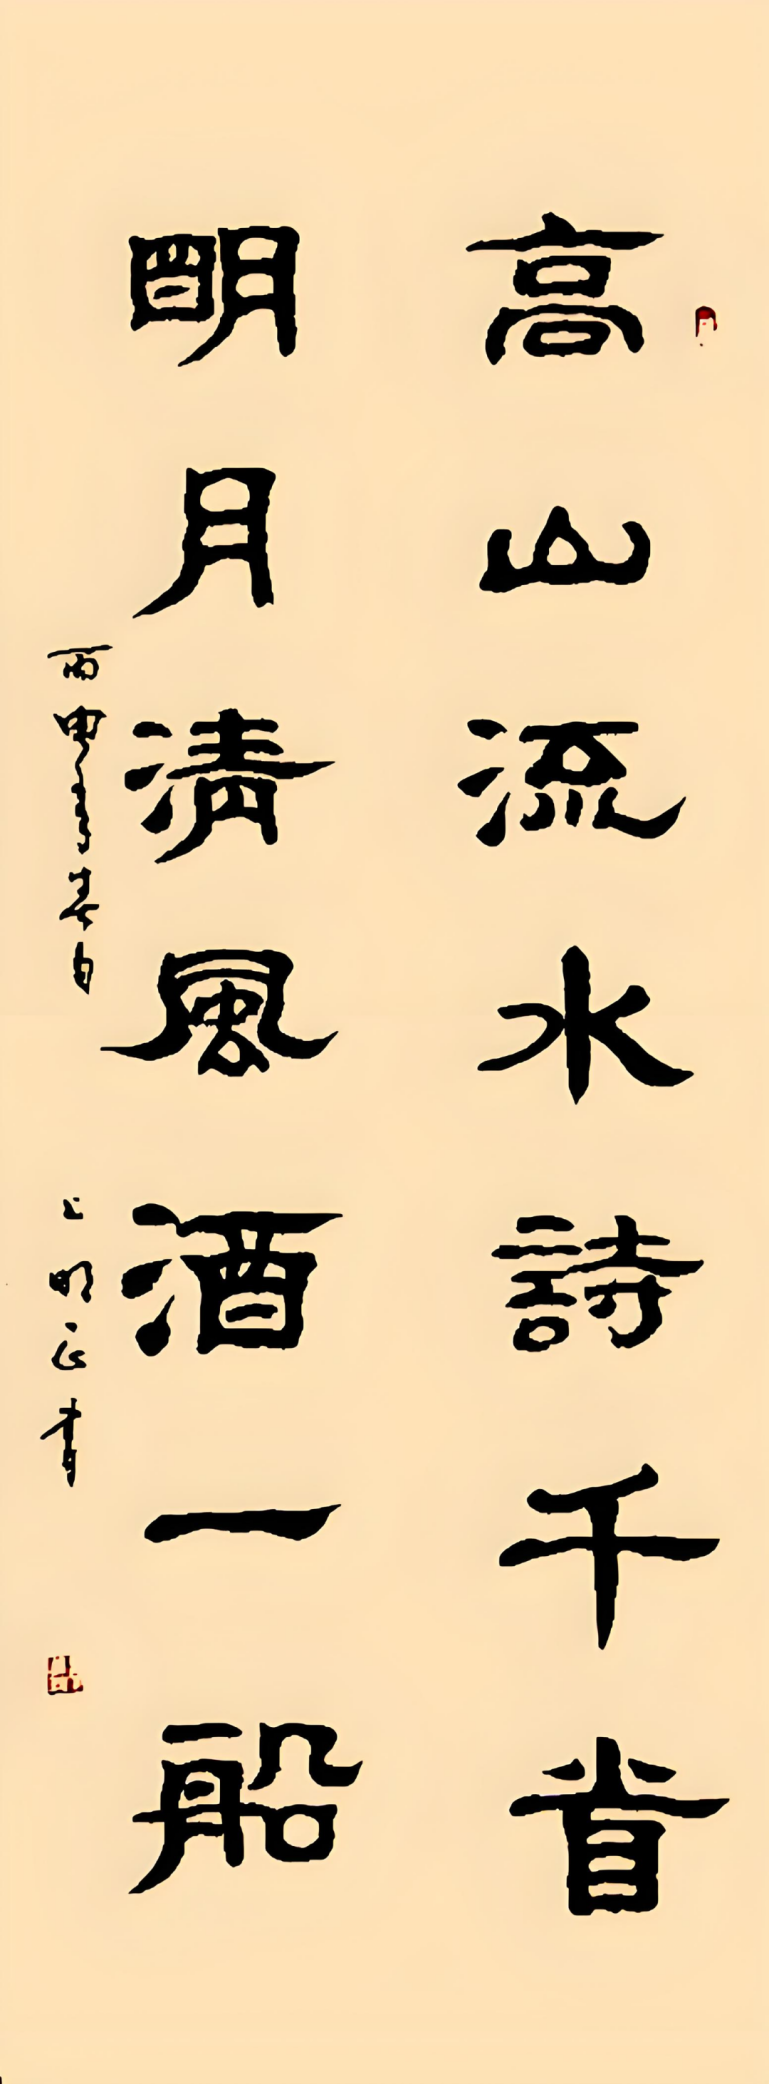 高山流水詩千首
明月清風酒一船
丙申年春月